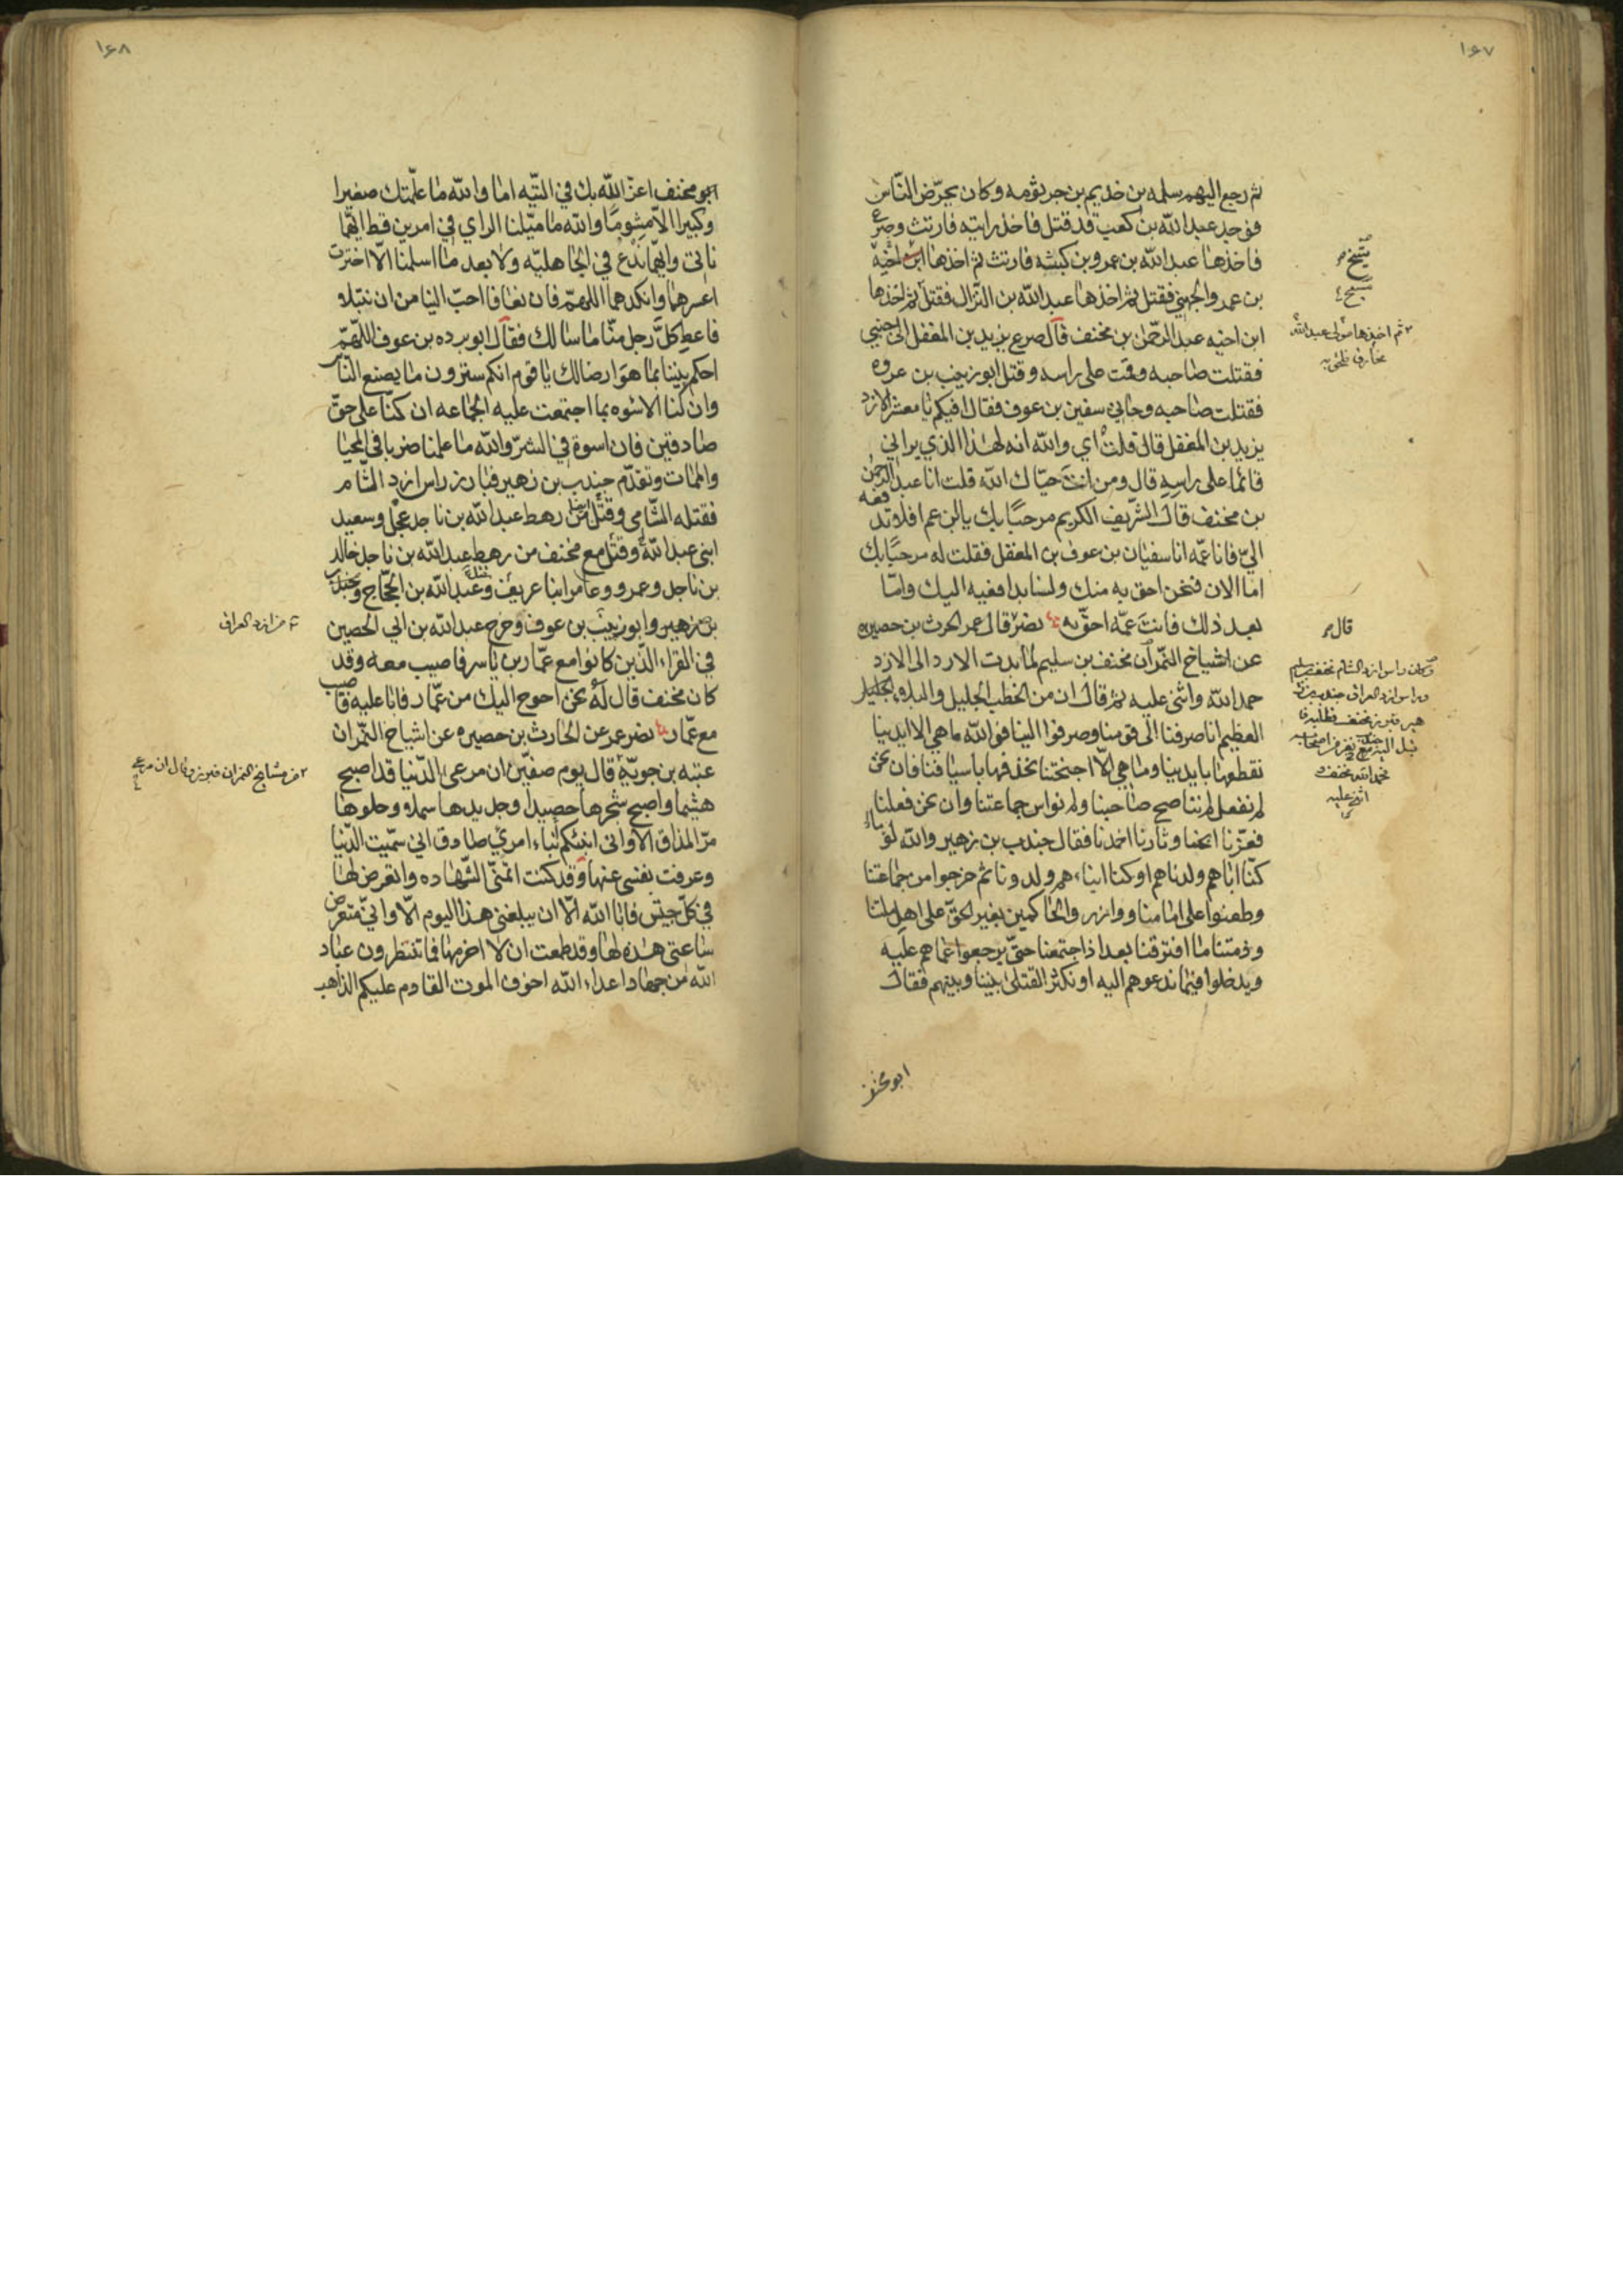 ١٦٧
ثم رجع اليهم سلمه بن خذيم بن جرثومه وكان يحرّض النّاس
فوجد عبد الله بن كعب قد قتل فاخذ رايته فارتث وصرع
فاخذها عبد الله بن عمرو بن كبشه فارتث ثم اخذها ابن اخيه
بن عمرو الجهني فقتل ثم اخذها عبد الله بن النّزال فقتل ثم اخذها
ابن اخيه عبد الرّحمن بن مخنف قال صرع يزيد بن المغفل الى جنبي
فقتلت صاحبه وقمت على راسه وقتل ابو زينب بن عروه
فقتلت صاحبه وجاني سفين بن عوف فقال افيكم يا معشر الازد
يزيد بن المغفل قال قلت اي والله انه لهذا الذي يراني
قائما على راسه قال ومن انت حيّاك الله قلت انا عبد الرحمن
بن مخنف قال الشّريف الكريم مرحبًا بك يا ابن عم افلا تدفعه
اليّ فانا عمّه انا سفيان بن عوف بن المغفل فقلت له مرحبًا بك
اما الان فنحن احق به منك ولسنا بدافعيه اليك وامّا
بعد ذلك فانت عمّه احقّ به نصر قال عمر الحرث بن حصيره
عن اشياخ النّمر ان مخنف بن سليم لما ندبت الازد الى الازد
حمد الله واثنى عليه ثم قال ان من الخطب الجليل والبلاء الجليل
العظيم انا صرفنا الى قومنا وصرفوا الينا فوالله ما هي الا ايدينا
نقطعها بايدينا وما هي الّا اجنحتنا نحذفها باسيافنا فان نحن
لم نفعل لم نناصح صاحبنا ولم نواس جماعتنا وان نحن فعلنا
فعزّنا ابحنا ونارنا اخمدنا فقال جندب بن زهير والله لو
كنّا اباهم ولدناهم او كنا ابناءهم ولدونا ثم خرجوا من جماعتنا
وطعنوا على امامنا ووازر والحاكمين بغير الحقّ على اهل ملتنا
وذمتنا ما افترقنا بعد اذ اجتمعنا حتّى يرجعوا عما هم عليه
ويدخلوا فيما ندعوهم اليه او نكثر القتلى بيننا وبينهم فقال
ابو مخنف
ثم اخذها مولى عبد الله
قال
وكان راس ازد الشام مخنف بن سليم
وراس ازد العراق جندب بن
١٦٨
ابو مخنف اعزّ الله بك في النيّه اما والله ما علمتك صغيرا
وكبيرا الّا مشومًا والله ما ميّلنا الراي في امرين قط ايّهما
ناتي وايّهما ندع في الجاهليّه ولا بعد ما اسلمنا الّا اخترت
اعسرهما وانكدهما اللهمّ فان نعافا احبّ الينا من ان نبتلا
فاعط كلّ رجل منّا ما سالك فقال ابو برده بن عوف اللهمّ
احكم بيننا بما هو ارضا لك يا قوم انكم سترون ما يصنع النّاس
وان لنا الاسوه بما اجتمعت عليه الجماعه ان كنّا على حقّ
صادقين فان اسوة في الشرّ والله ما علمنا ضر با في المحيا
والممات وتقدّم جندب بن زهير فبارز راس ازد الشّام
فقتله الشّامي وقتل من رهط عبد الله بن ناجد عجل وسعيد
ابني عبد الله وقتل مع مخنف من رهط عبد الله بن ناجد خالد
بن ناجد وعمرو وعامر ابنا عريف وعبد الله بن الحجّاج وجندب
بن زهير وابو زينب بن عوف وخرج عبد الله بن ابي الحصين
في القراء الّذين كانوا مع عمّار بن ياسر فاصيب معه وقد
كان مخنف قال له نحن احوج اليك من عمّار فابا عليه فاصيب
مع عمّار نصر عمر عن الحارث بن حصيره عن اشياخ النّمر ان
عتبه بن جويّه قال يوم صفّين ان مرعى الدّنيا قد اصبح
هشيما واصبح شجرها حصيدا وجديدها سملا وحلوها
مرّ المذاق الا واني انبئكم نباء امرئ صادق اني سئمت الدّنيا
وعرفت نفسي عنها وقد كنت اتمنّى الشّهاده واتعرض لها
في كلّ جيش فابا الله الّا ان يبلغني هذا اليوم الّا وانيّ متعرض
ساعتي هذه لها وقد طمعت ان لا احرمها فما تنتظرون عباد
الله من جهاد اعداء الله اخوف الموت القادم عليكم الذاهب
من ازد العراق